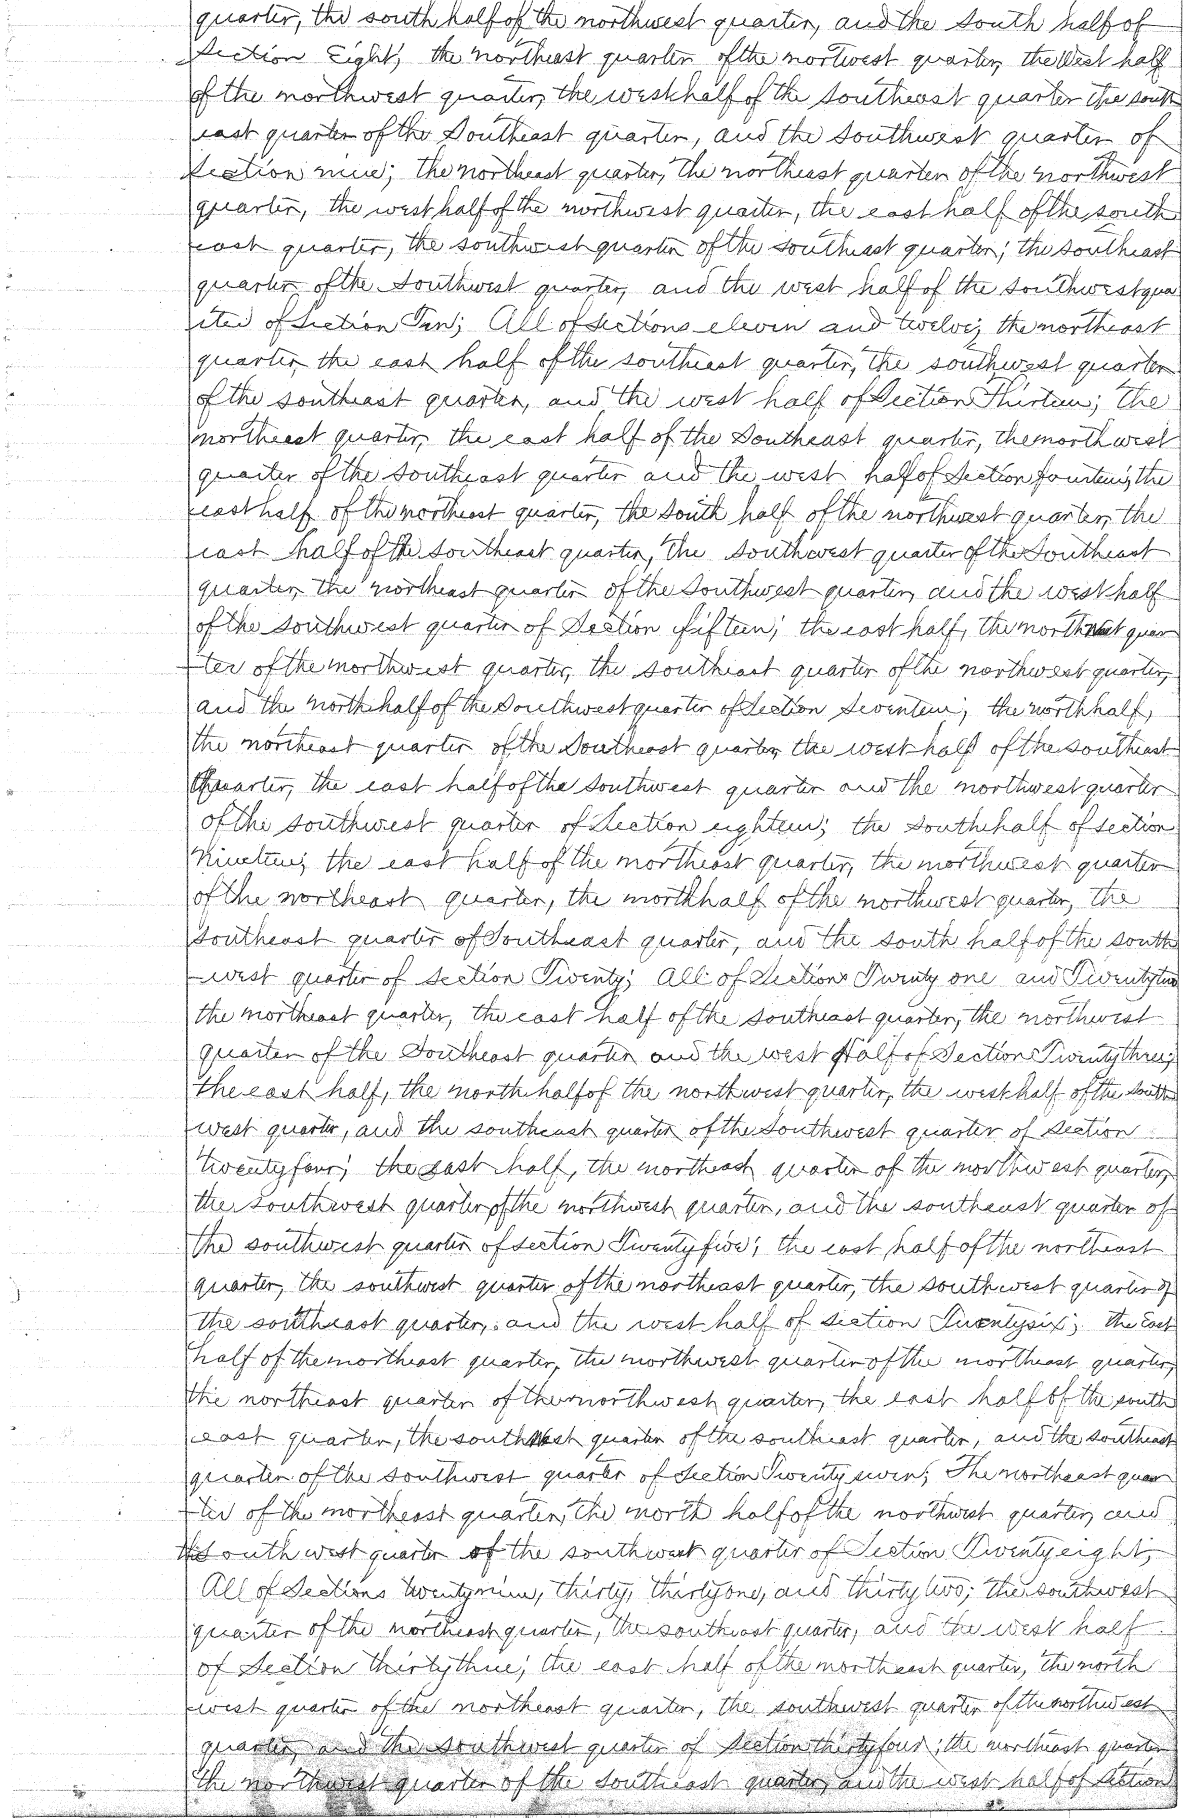 quarter, the south half of the northwest quarter, and the South half of
Section Eight; the northeast quarter of the nortwest quarter, the West half
of the northwest quarter, the west half of the southeast quarter the south
east quarter of the Southeast quarter, and the southwest quarter of
Section nine; the northeast quarter, the northeast quarter of the northwest
quarter, the west half of the northwest quarter, the east half of the south
east quarter, the southwest quarter of the southeast quarter; the southeast
quarter of the Southwest quarter, and the west half of the southwest qua
rter of Section Ten; All of sections eleven and twelve; the northeast
quarter, the east half of the southeast quarter, the southwest quarter
of the southeast quarter, and the west half of Section Thirteen; the
northeast quarter, the east half of the Southeast quarter, the northwest
quarter of the southeast quarter and the west half of Section fourteen; the
east half of the northeast quarter, the South half of the northwest quarter, the
east half of the southeast quarter, the southwest quarter of the Southeast
quarter, the northeast quarter of the Southwest quarter, and the west half
of the southwest quarter of Section fifteen; the east half, the northwest quar
ter of the northwest quarter, the southeast quarter of the northwest quarter,
and the north half of the Southwest quarter of Section Seventeen; the north half,
the northeast quarter of the Southeast quarter, the west half of the southeast
quarter, the east half of the southwest quarter and the northwest quarter
of the southwest quarter of Section eighteen; the south half of section
Nineteen; the east half of the northeast quarter, the northwest quarter
of the northeast quarter, the north half of the northwest quarter, the
southeast quarter of Southeast quarter, and the south half of the south
west quarter of section Twenty; All of Sections Twenty one and Twenty two
the northeast quarter, the east half of the southeast quarter, the northwest
quarter of the Southeast quarter and the west Half of Section Twenty three;
the east half, the north half of the northwest quarter, the west half of the south
west quarter, and the southeast quarter of the Southwest quarter of section
twenty four; the east half, the northeast quarter of the northwest quarter,
the southwest quarter of the northwest quarter, and the southeast quarter of
the southwest quarter of section Twenty five; the east half of the northeast
quarter, the southwest quarter of the northeast quarter, the southwest quarter of
the southeast quarter, and the west half of section Twenty six; the East
half of the northeast quarter, the northwest quarter of the northeast quarter,
the northeast quarter of the northwest quarter, the east half of the south
east quarter, the southwest quarter of the southeast quarter, and the southeast
quarter of the southwest quarter of Section Twenty seven; The northeast quar
ter of the northeast quarter, the north half of the northwest quarter, and
the South west quarter of the southwest quarter of Section Twenty eight,
All of Sections twenty nine, thirty, thirty one, and thirty two; the southwest
quarter of the northeast quarter, the southeast quarter, and the west half
of Section thirty three; the east half of the northeast quarter, the north
west quarter of the northeast quarter, the southwest quarter of the northwest
quarter, and the southwest quarter of section thirty four; the northeast quarter
the northwest quarter of the southeast quarter, and the west half of section